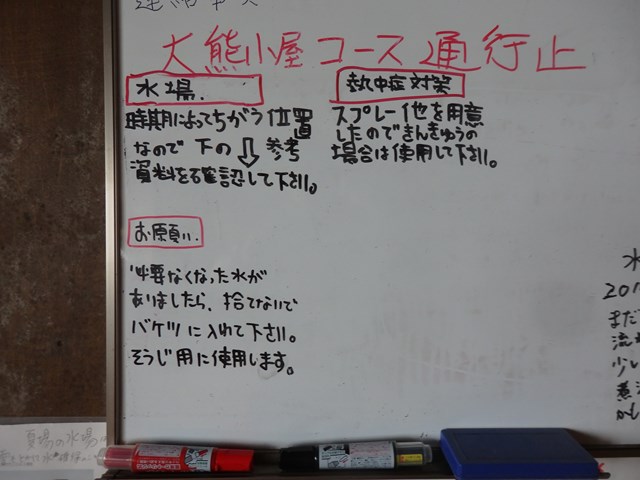 大熊小屋コース通行止
水場.
時期によってちがう位置
なので下の⇩参考
資料を確認して下さい。
熱中症対策
スプレー他を用意
したのできんきゅうの
場合は使用して下さい。
お願い.
必要なくなった水が
ありましたら、捨てないで
バケツに入れて下さい。
そうじ用に使用します。
水
201
まだ
流
少し
煮
かし
夏場の水場